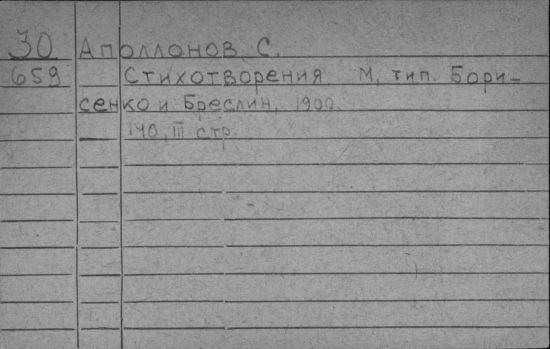 30 Аполлонов С.
659 Стихотворения М, тип. Бори-
сенко и Бреслин, 1900.
140, III стр.